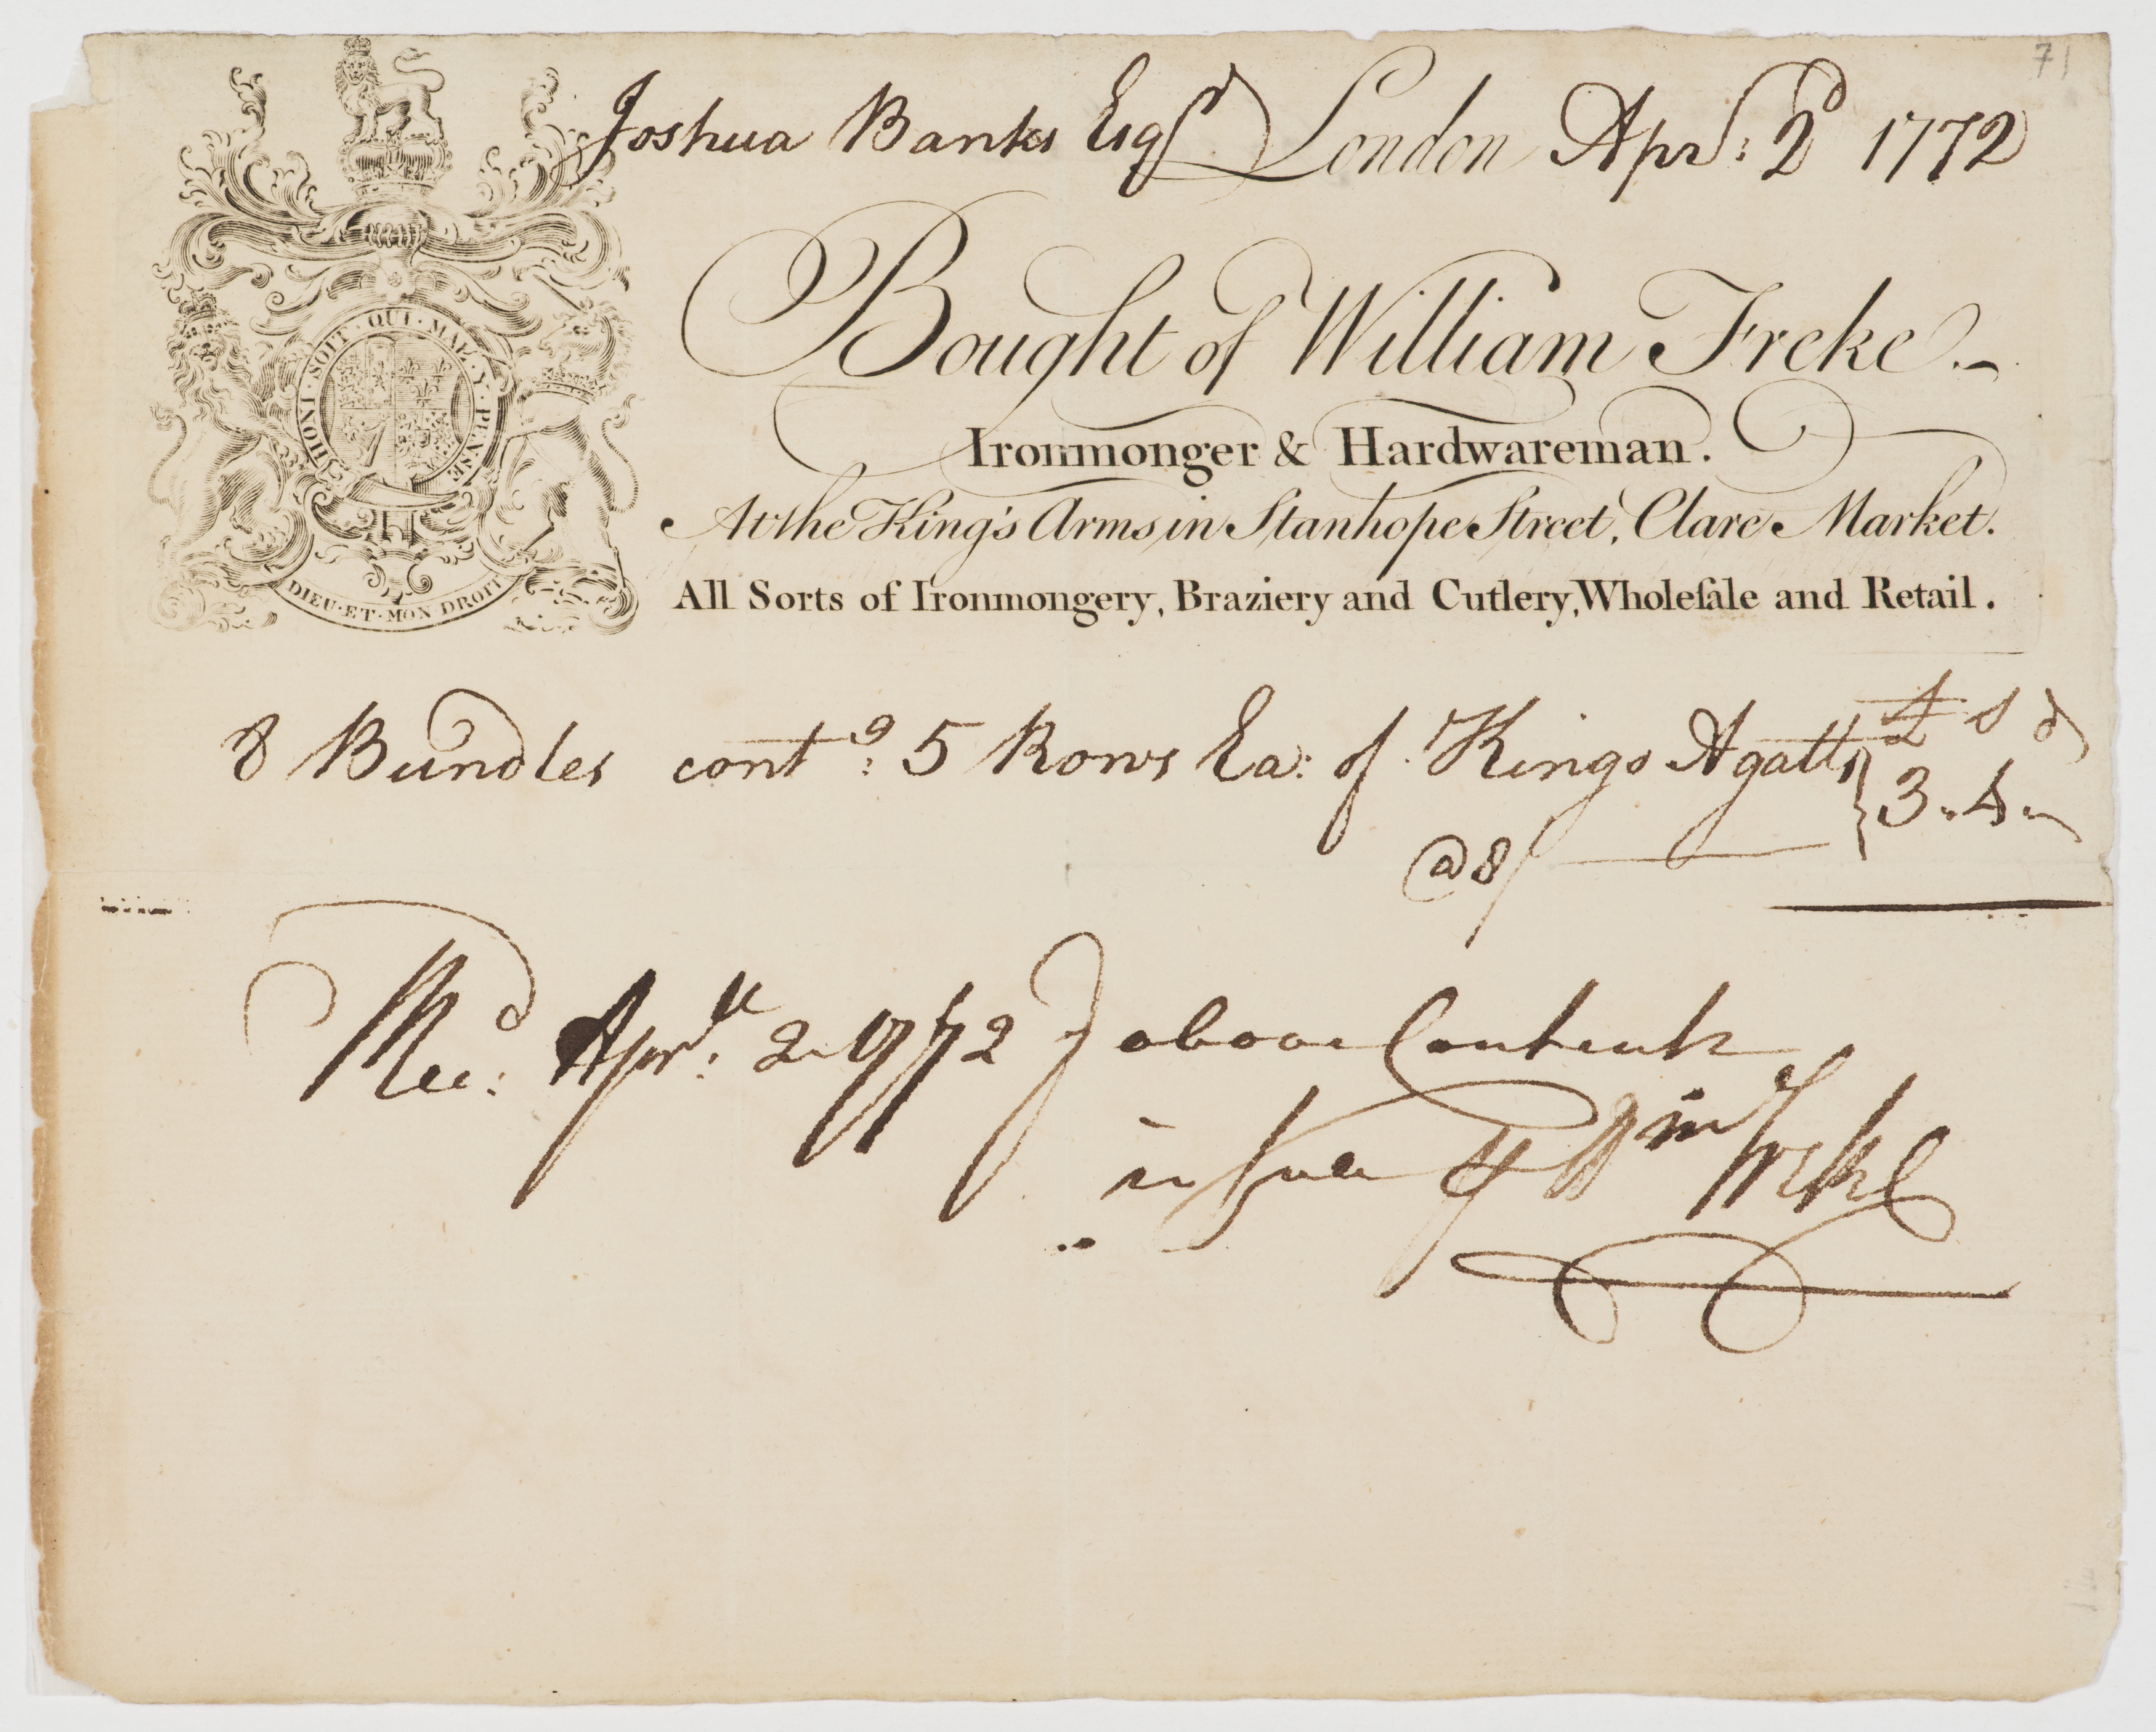 71
Joshua Banks Esqr London Aprl: 2d 1772
Bought of William Freke.
Ironmonger & Hardwareman.
At the King's Arms in Stanhope Street, Clare Market.
All Sorts of Ironmongery, Braziery and Cutlery, Wholeſale and Retail.
HONI · SOIT · QUI · MAL · Y · PENSE
DIEU · ET · MON DROIT
£ s d
8 Bundles contg: 5 Rows Ea: of Kings Agatts } 3 " 4 "
@ 8/
Recd: Aprll: 2 1772 ye above Contents
in full ⅌ Wm Freke